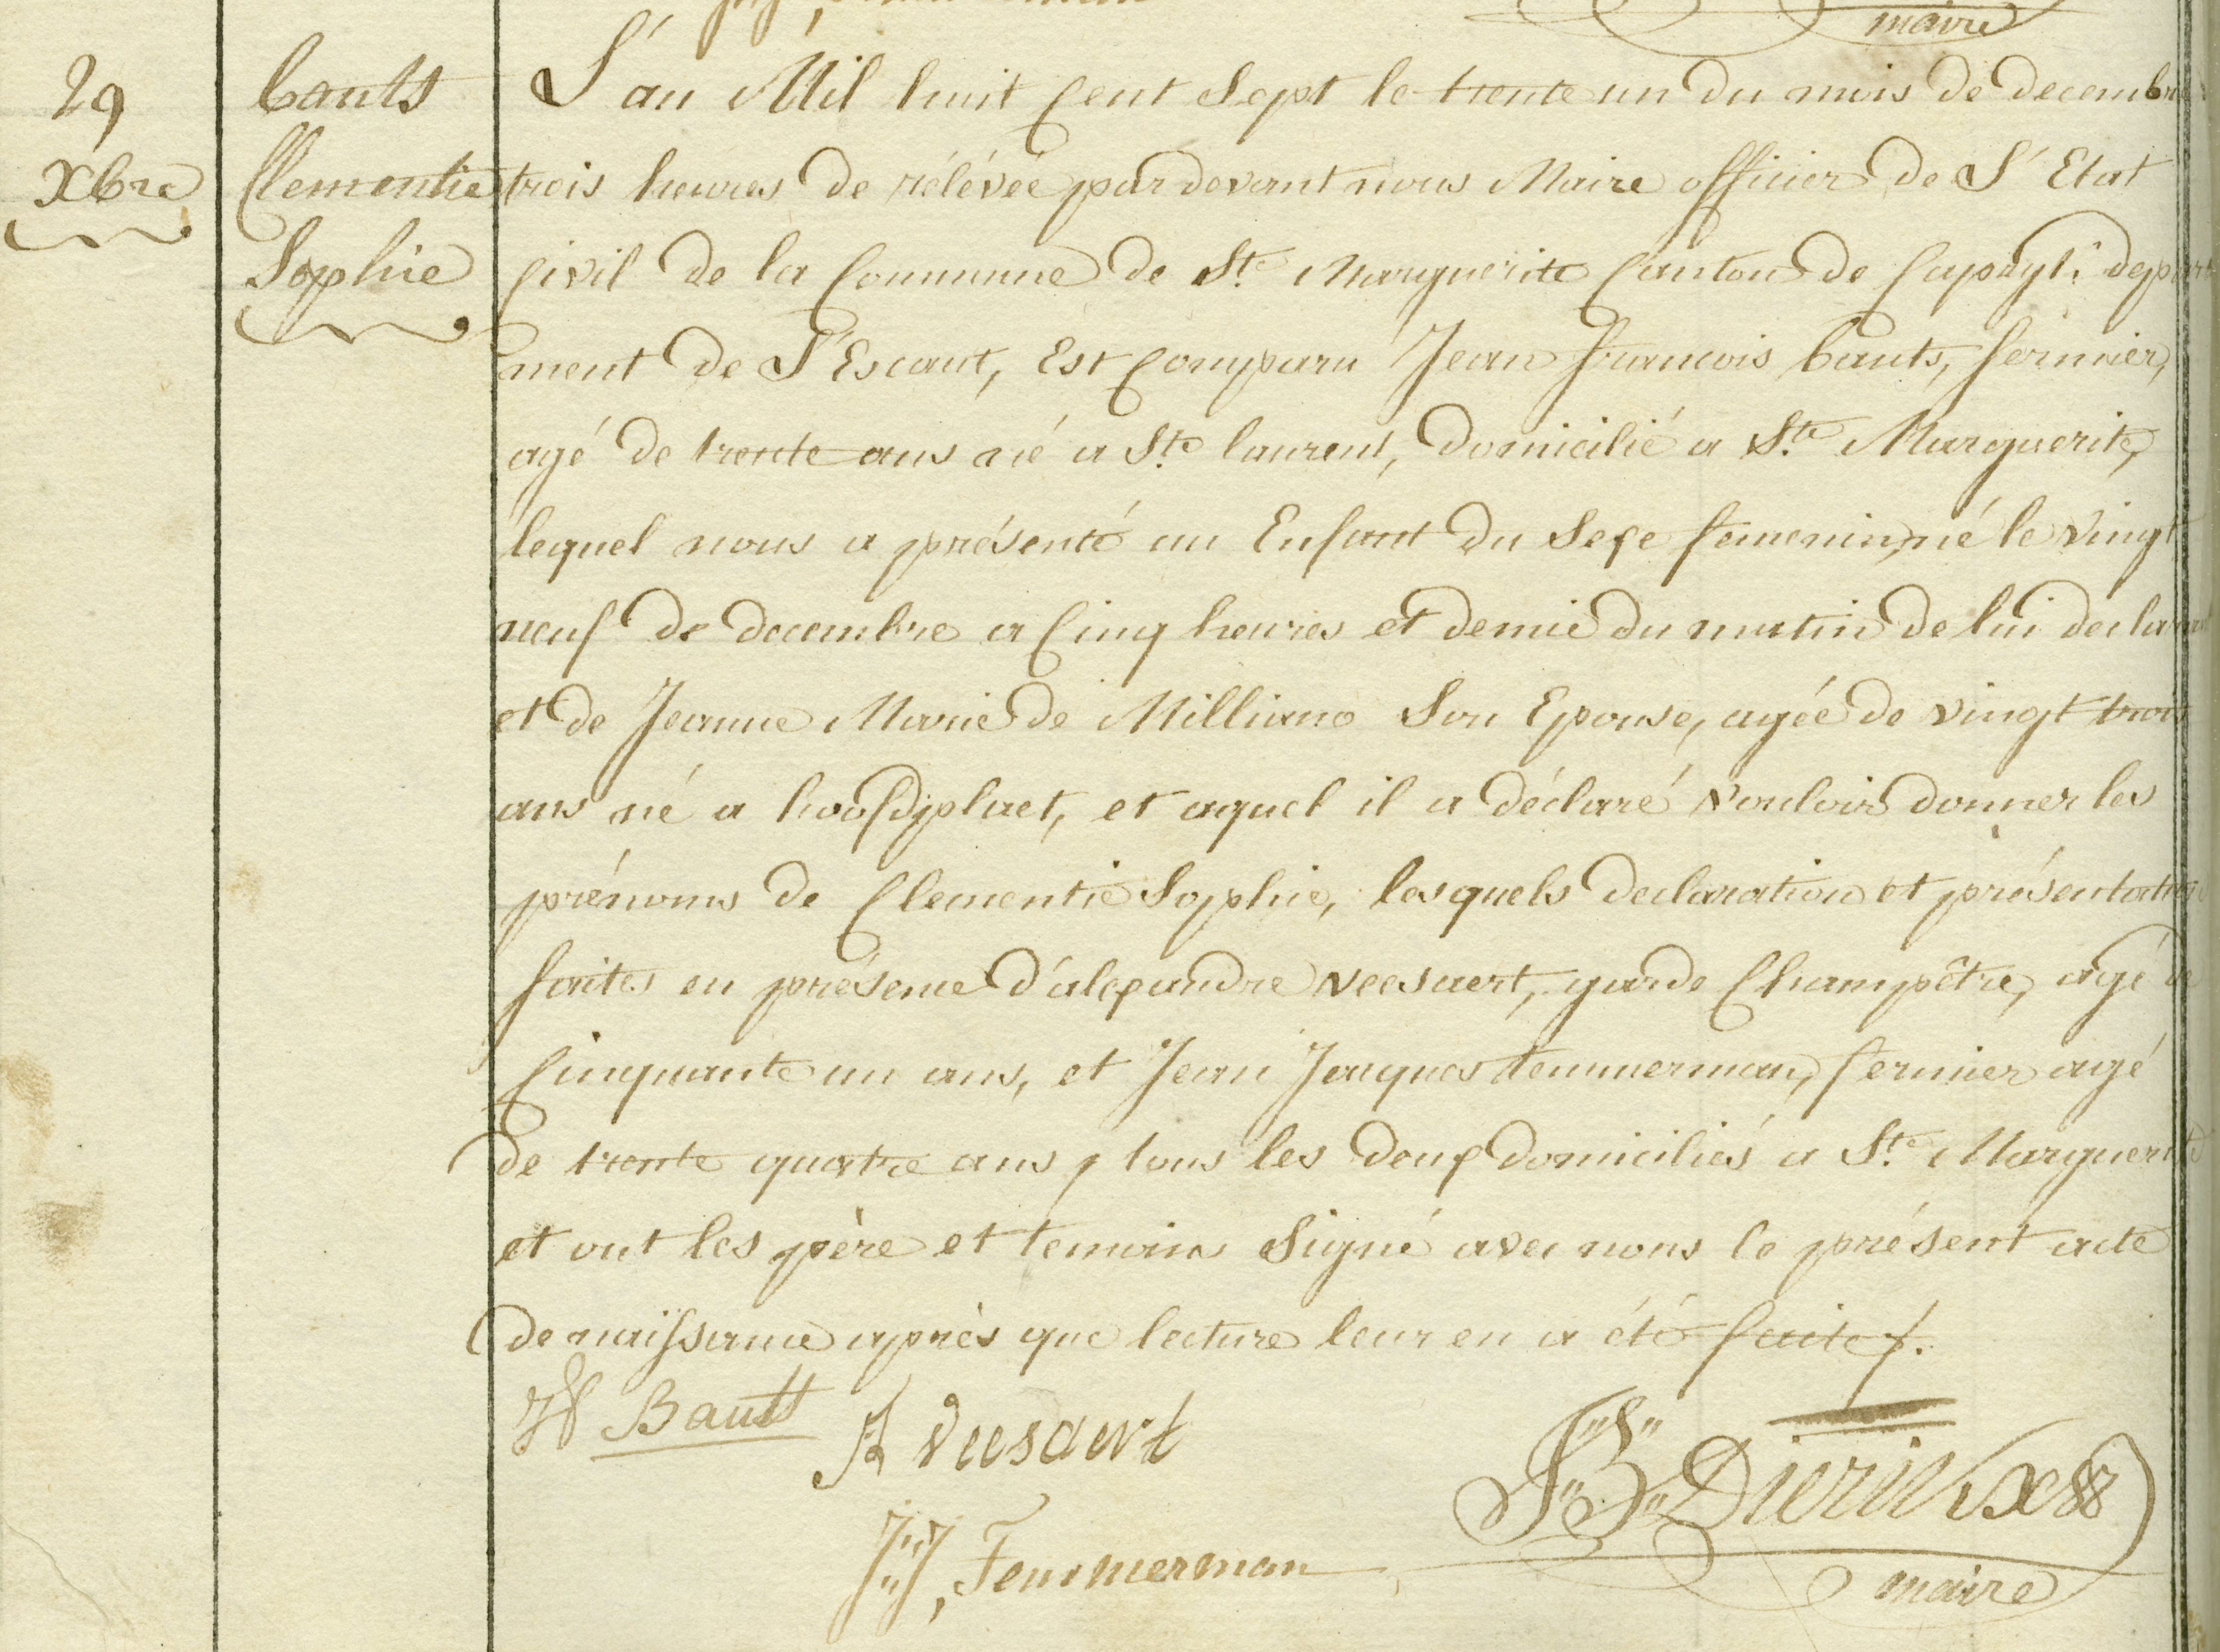 maire
29
Xbre
Bauts
Clementie
Sophie
L'an Mil huit Cent Sept le trente un du mois de decembre
trois heures de rélévée par devant nous Maire officier de L'Etat
Civil de la Commune de Ste Marguerite Canton de Capryk: departe
ment de L'Escaut, Est Comparu Jean francois bauts, fermier,
agé de trente ans né a Ste laurent, Domicilié a Ste Marguerite,
lequel nous a présenté un Enfant Du Sexe femenin, né le Vingt
neuf de decembre a Cinq heures et demie du matin de lui declarant
et de Jeanne Marie de Milliano Son Epouse, agée de vingt trois
ans né a hoofdplaet, et aquel il a déclaré Vouloir donner les
prénoms de Clementie Sophie, lesquels declaration et présentation
faites en présence d'alexandre veesaert, garde Champêtre, agé de
Cinquante un ans, et Jean Jacques temmerman, fermier agé
de trente quatre ans, tous les deux domiciliés a Ste Marguerite
et ont les père et temoins Signé avec nous le présent acte
de naissance après que lecture leur en a été faite/.
JF Bautt A veesaert
J:B: Dierickx
J:J, Temmerman
maire